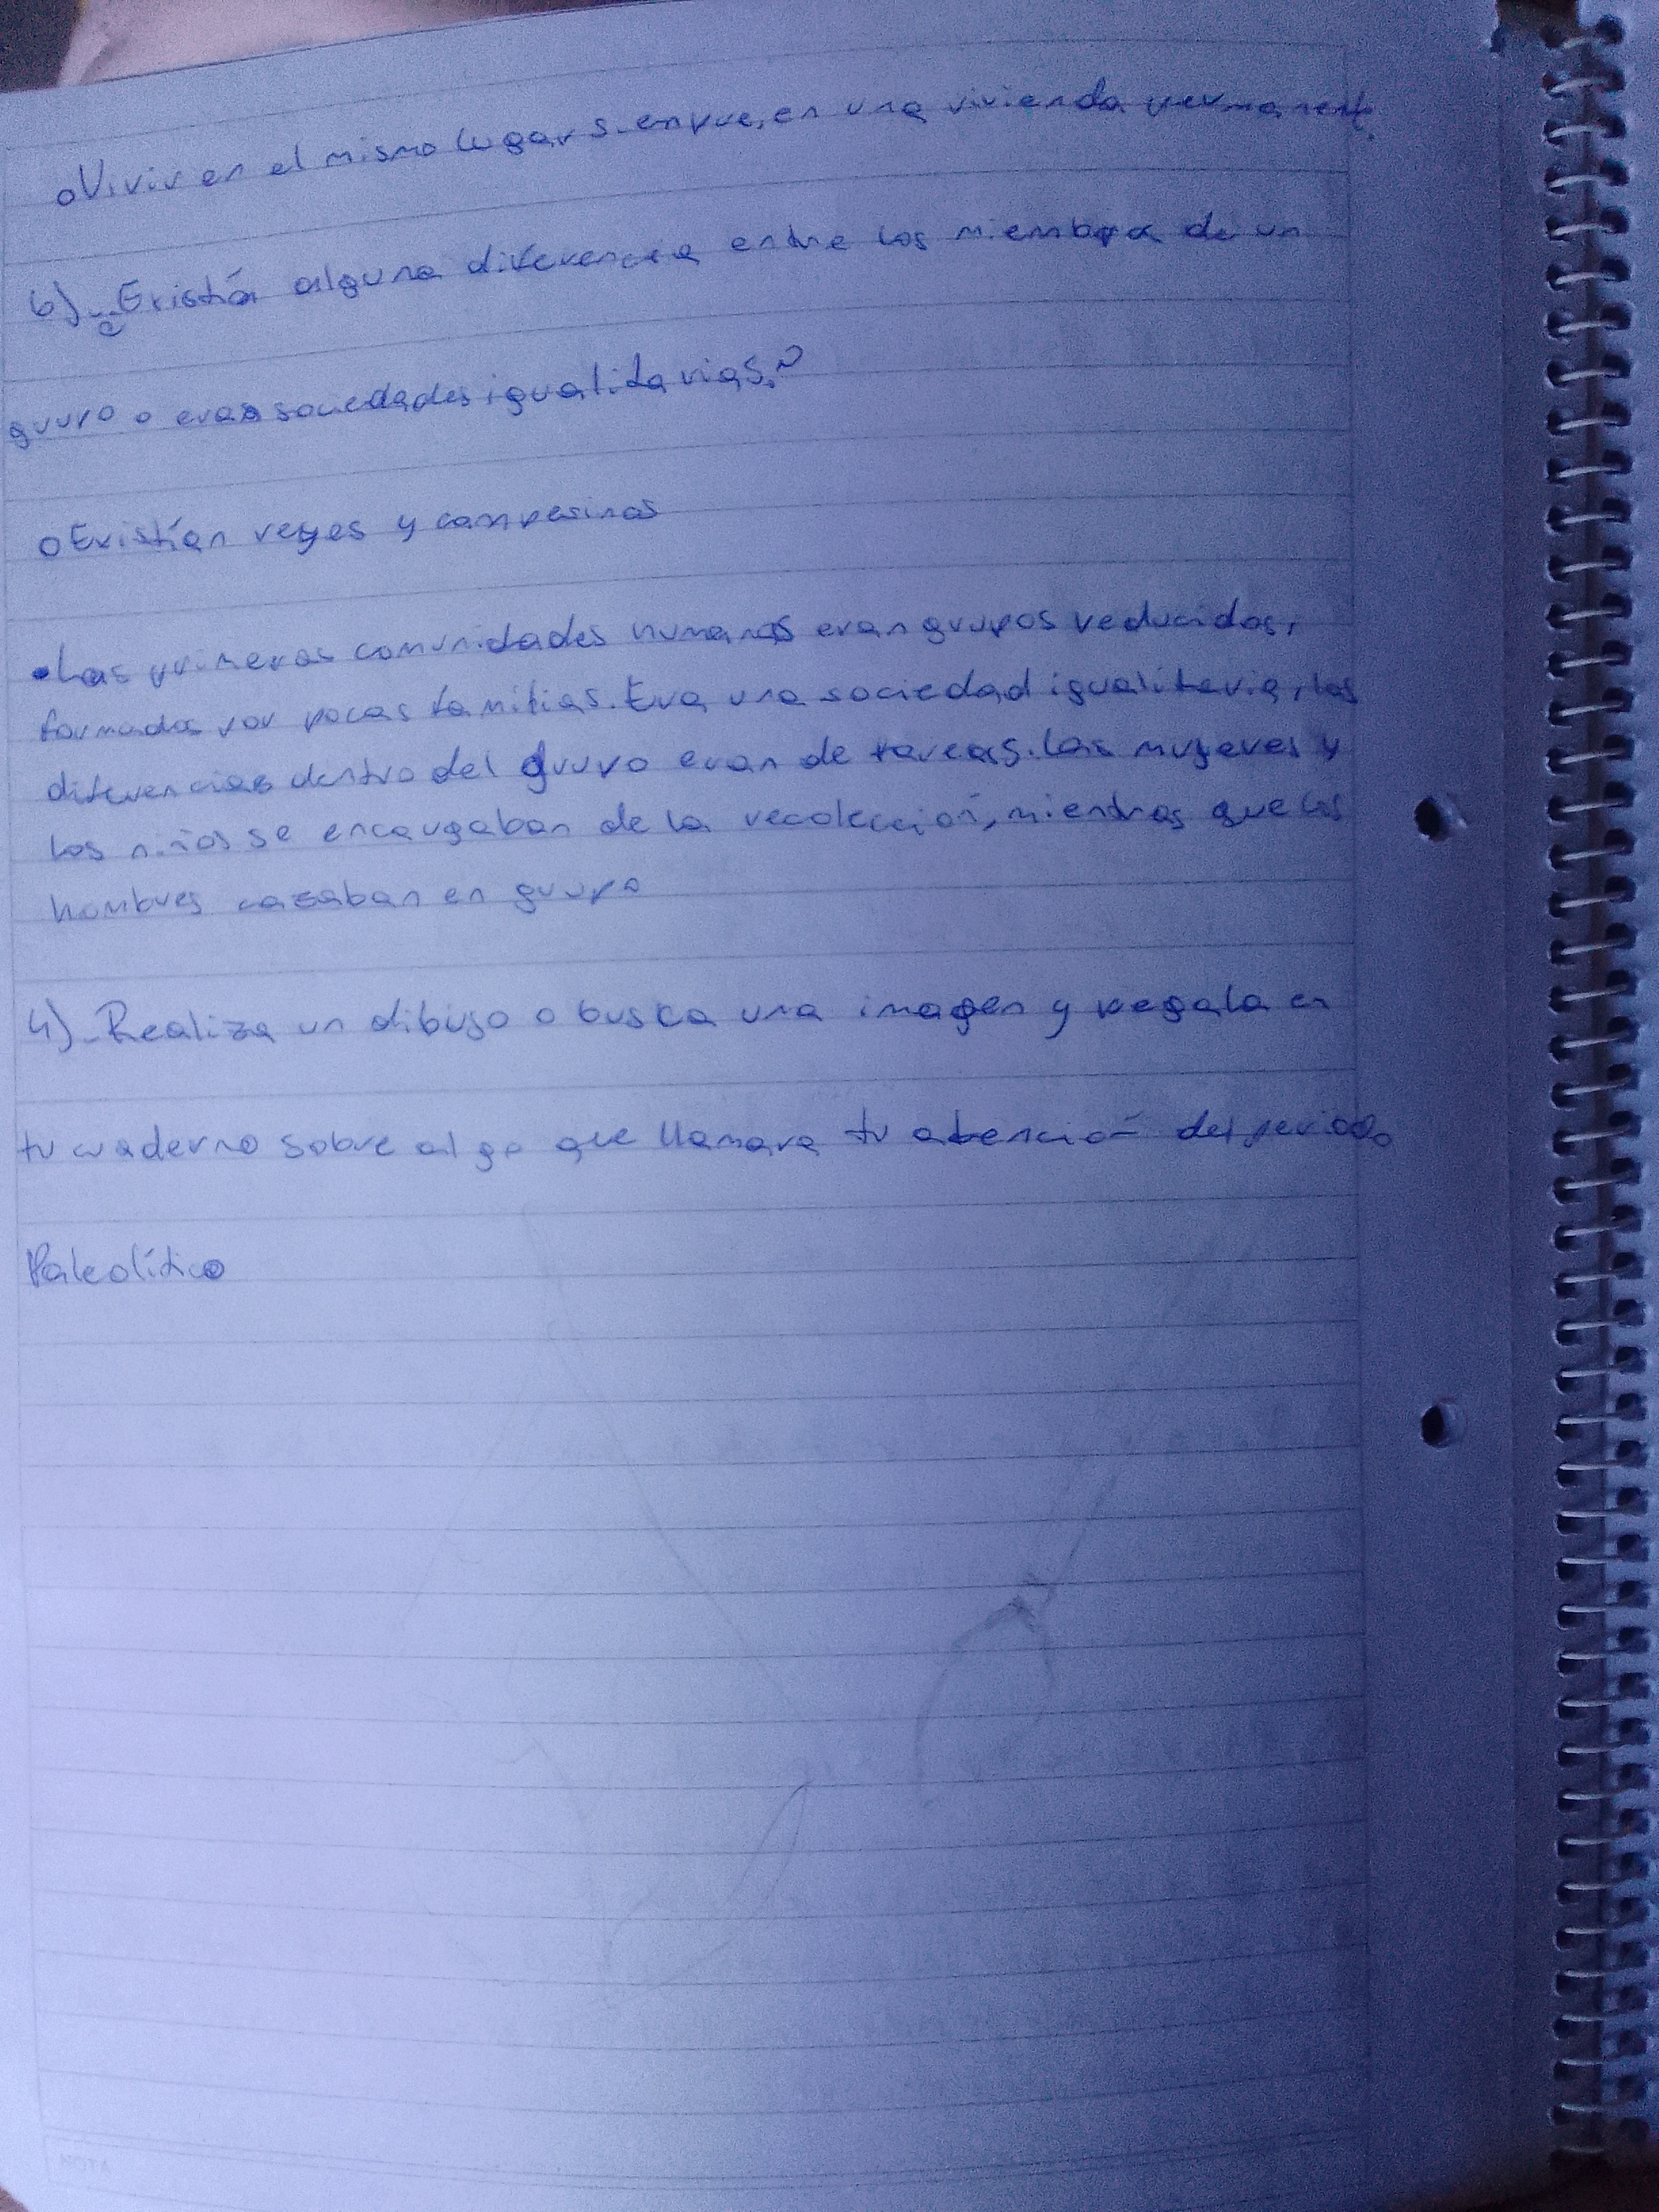 o Vivir en el mismo lugar siempre, en una vivienda permanent.
6)- ¿Existía alguna diferencia entre los miembros de un
grupo o eran sociedades igualitarias?
o Existían reyes y campesinos
• Las primeras comunidades humanas eran grupos reducidos,
formados por pocas familias. Era una sociedad igualitaria, las
diferencias dentro del grupo eran de tareas. Las mujeres y
los niños se encargaban de la recolección, mientras que los
hombres cazaban en grupo
4)- Realiza un dibujo o busca una imagen y pegala en
tu cuaderno sobre algo que llamara tu atención del periodo
Paleolítico
NOTA